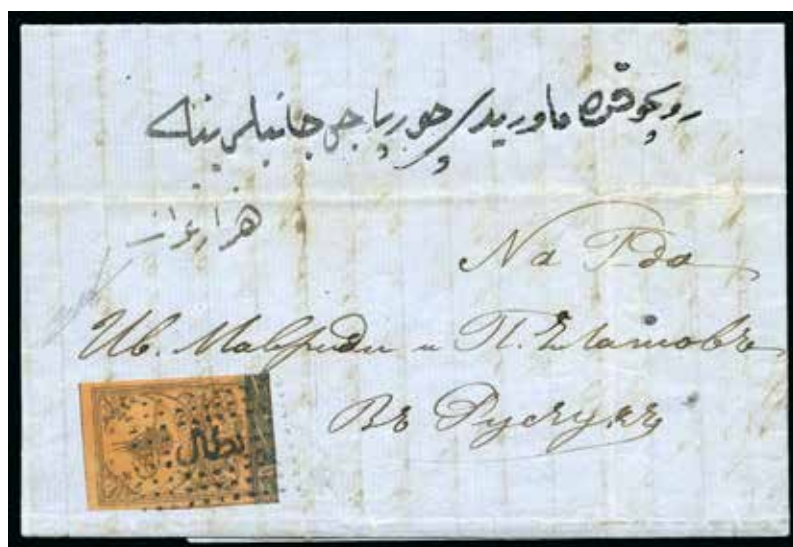 روسچقده ماوریدی چورباجی جانبلرینه
هزارغراد
Na Гда
Ив. Мавриди и П. Златовъ
Въ Русчукъ
بطال